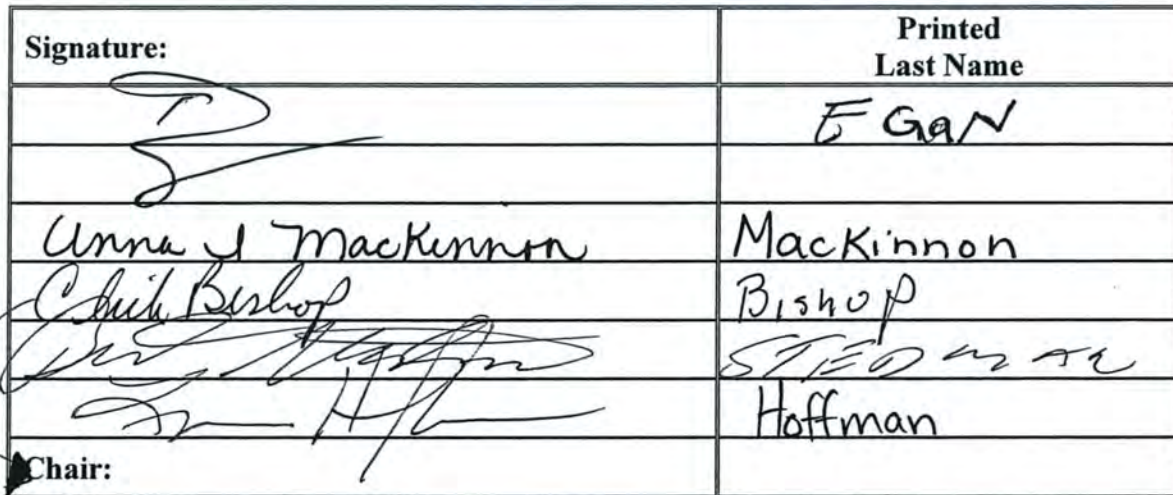 Signature:
Printed
Last Name
EGaN
Anna I MacKinnon
MacKinnon
Click Bishop
Bishop
STEDMAN
Hoffman
Chair: